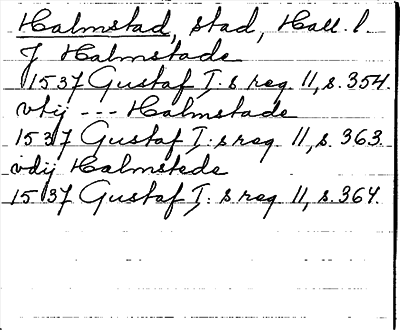 Halmstad, stad, Hall. l.
J Halmstade
1537 Gustaf I:s reg. 11, s. 354.
vtij --- Halmstade
1537 Gustaf I:s reg. 11, s. 363.
vdij Halmstede
1537 Gustaf I:s reg. 11, s. 364.